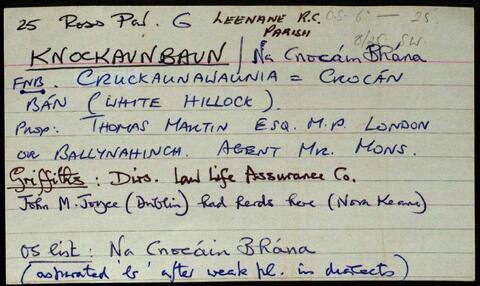 25 Ross Par. G LEENANE R.C. PARISH OS. 6" — 25
8/25 SW
KNOCKAUNBAUN / Na Cnocáin BhÁna
FNB. CRUCKAUNAWAUNIA = CROCÁN
BÁN (WHITE HILLOCK).
PROP: THOMAS MARTIN ESQ. M.P. LONDON
OR BALLYNAHINCH. AGENT MR. MONS.
Griffiths: Dirs. Law Life Assurance Co.
John M. Joyce (Dublin) had herds here (Nora Keane)
OS list: Na Cnocáin BhÁna
(aspirated 'b' after weak pl. in dialects)